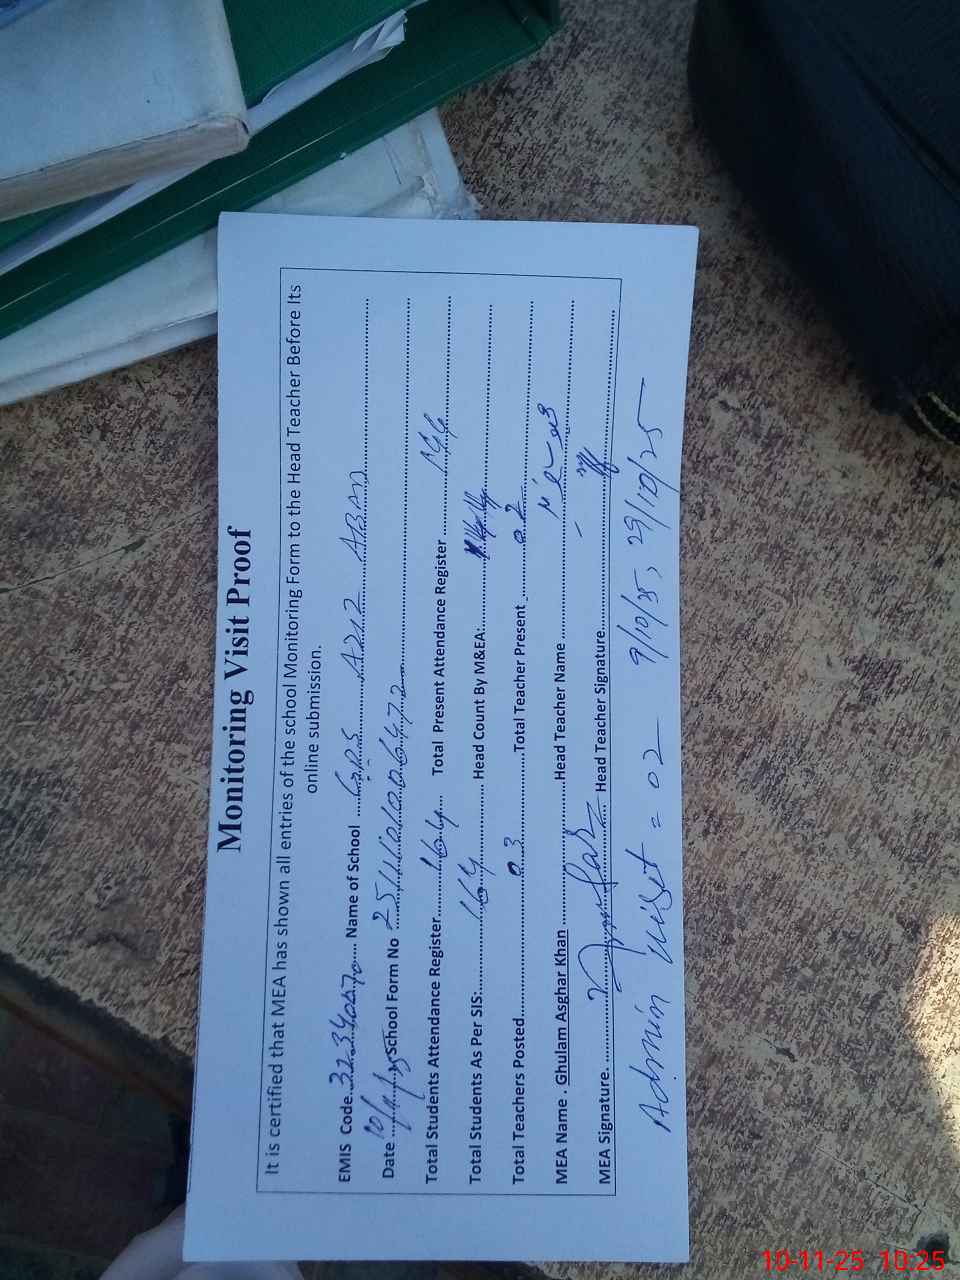 Monitoring Visit Proof
It is certified that MEA has shown all entries of the school Monitoring Form to the Head Teacher Before Its
online submission.
EMIS Code 32340070 Name of School GPS AZIZ ABAD
Date School Form No
Total Students Attendance Register 164 Total Present Attendance Register
Total Students As Per SIS: 164 Head Count By M&EA:
Total Teachers Posted 03 Total Teacher Present 02
MEA Name . Ghulam Asghar Khan Head Teacher Name
MEA Signature. Head Teacher Signature
Admin Visit = 02 9/10/25, 29/10/25
10-11-25 10:25